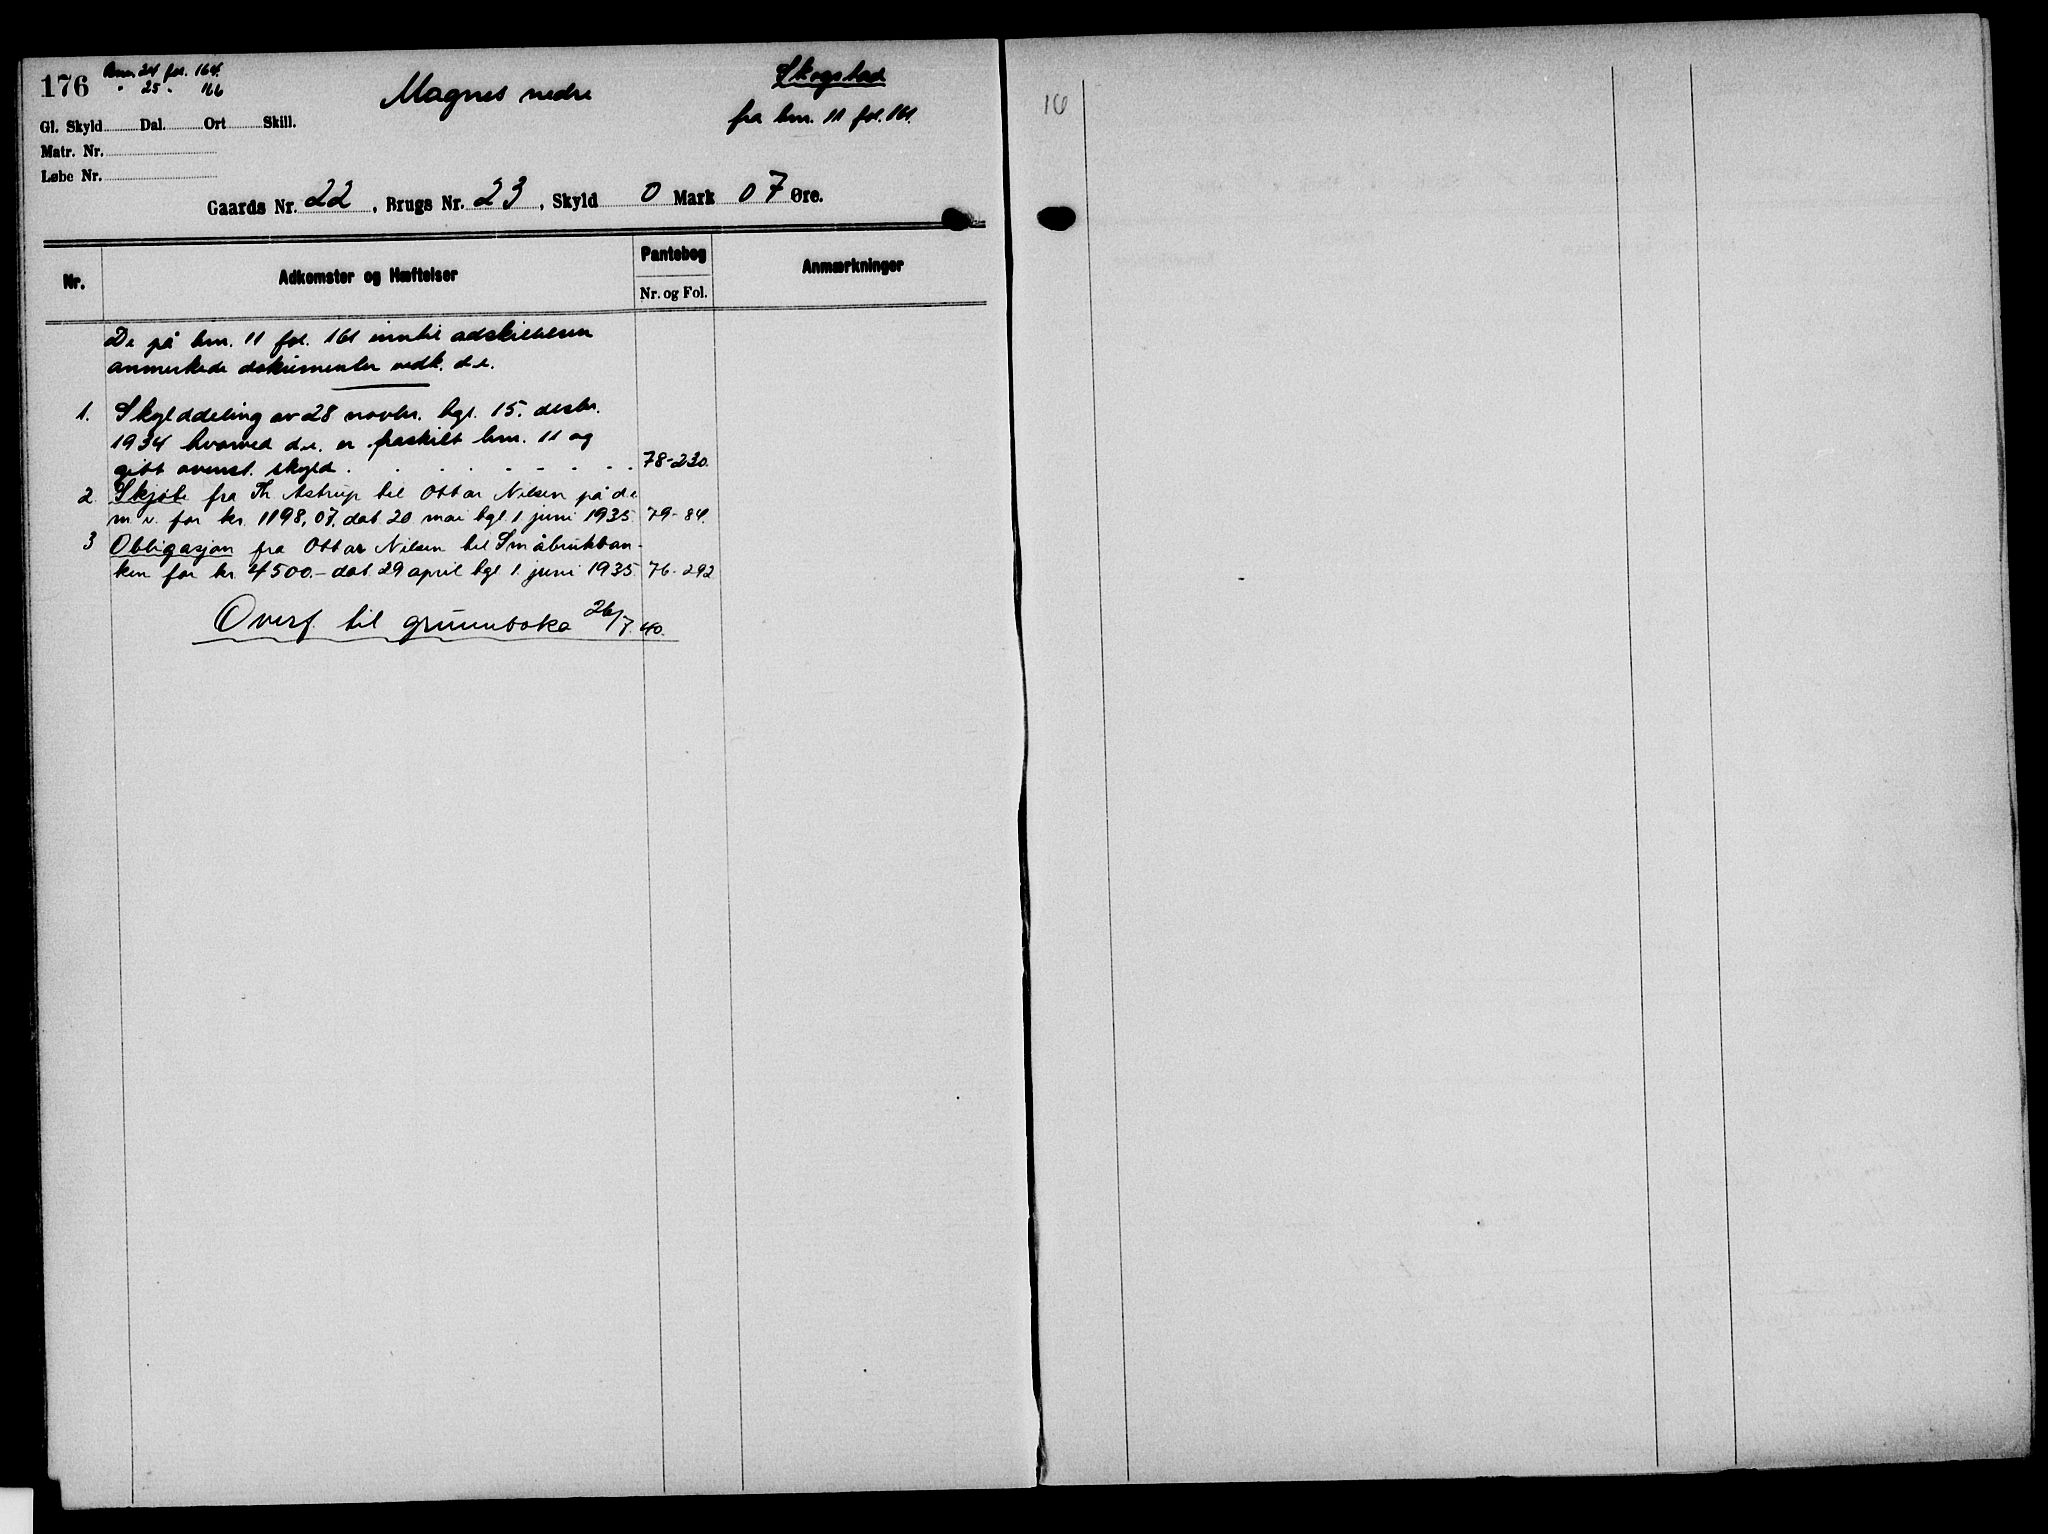 176 Bnr. 24 fol. 164.
" 25 " 166
Magnes nedre
Skogstad
fra bnr. 11 fol. 161.
Gl. Skyld Dal. Ort Skill.
Matr. Nr.
Løbe Nr.
Gaards Nr. 22, Brugs Nr. 23, Skyld 0 Mark 07 Øre.
Nr.
Adkomster og Hæftelser
Pantebog
Nr. og Fol.
Anmærkninger
De på bnr. 11 fol. 161 inntil adskillelsen
anmerkede dokumenter vedk. d.e.
1. Skylddeling av 28 novbr. tgl. 15. desbr.
1934 hvorved d.e. er fraskilt bnr. 11 og
gitt ovenst. skyld. 78-230.
2. Skjøte fra Th Astrup til Ottar Nilsen på d.e
m.v. for kr. 1198,07. dat 20 mai tgl. 1 juni 1935. 79-84.
3 Obligasjon fra Ottar Nilsen til Småbrukban-
ken for kr 4500.- dat. 29 april tgl 1. juni 1935. 76-292
Overf. til grunnboka 26/7.40.
16